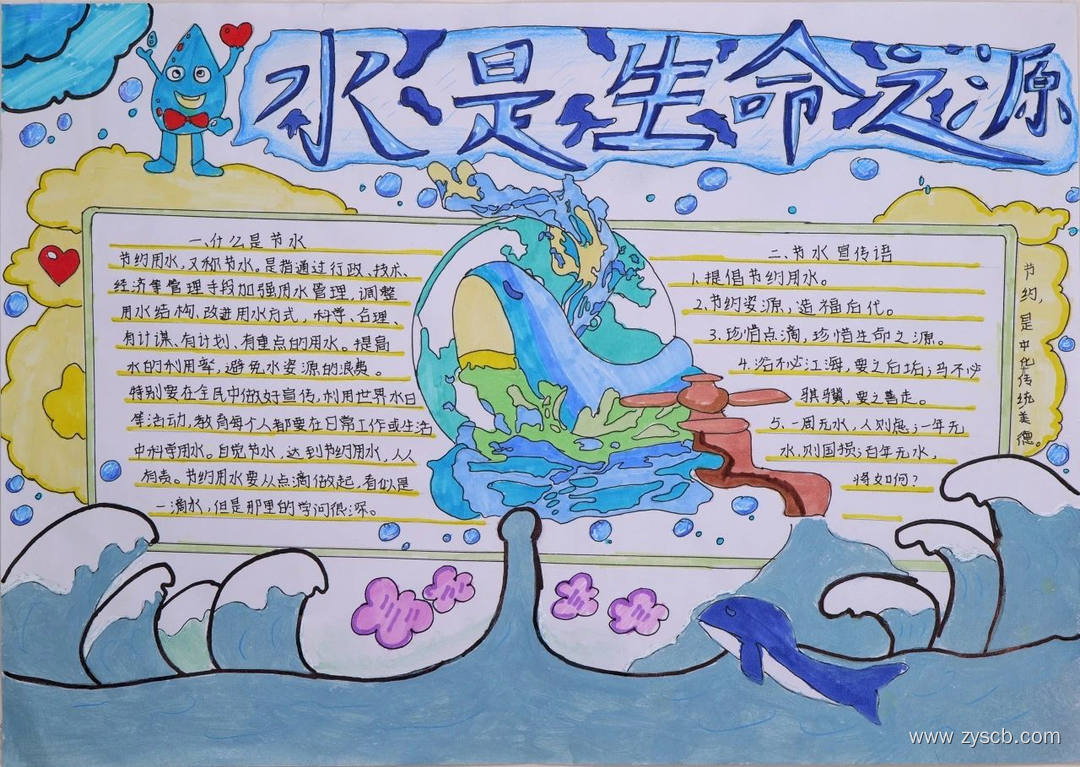 水是生命之源
一、什么是节水
节约用水,又称节水。是指通过行政、技术、
经济等管理手段加强用水管理,调整
用水结构,改进用水方式,科学、合理、
有计谋、有计划、有重点的用水。提高
水的利用率,避免水姿源的浪费。
特别要在全民中做好宣传,利用世界水日
等活动,教育每个人都要在日常工作或生活
中科学用水。自觉节水,达到节约用水,人人
有责。节约用水要从点滴做起,看似是
一滴水,但是那里的学问很深。
二、节水宣传语
1.提倡节约用水。
2.节约姿源,造福后代。
3.珍惜点滴,珍惜生命之源。
4.浴不必江海,要之后垢;马不必
骐骥,要之善走。
5.一周无水,人则

;一年无
水,则国损;百年无水,
将如何?
节约,是中华传统美德。
www.zyscb.com